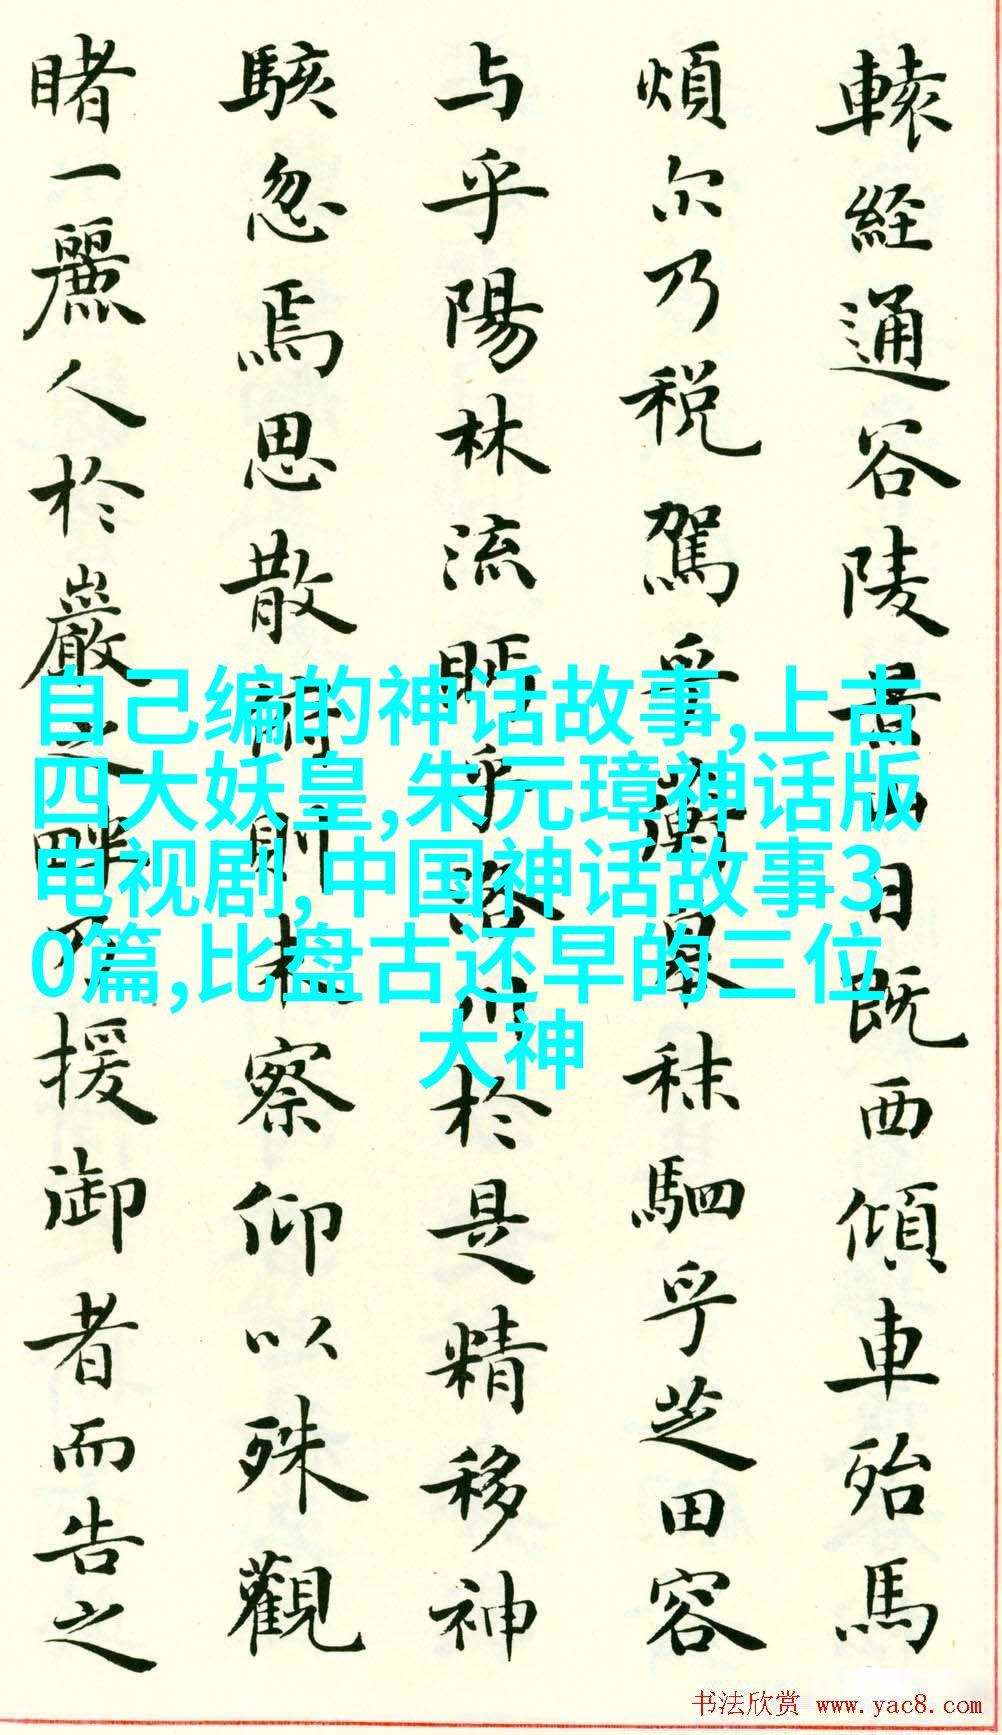 轅經通谷陵景山日既西傾車殆馬
煩尔乃税駕乎蘅皋秣駟乎芝田容
与乎陽林流眄乎洛川於是精移神
駭忽焉思散俯則未察仰以殊觀
睹一麗人於巖之畔乃援御者而告之
自己编的神话故事,上古
四大妖皇,朱元璋神话版
电视剧,中国神话故事3
0篇,比盘古还早的三位
大神
书法欣赏 www.yac8.com